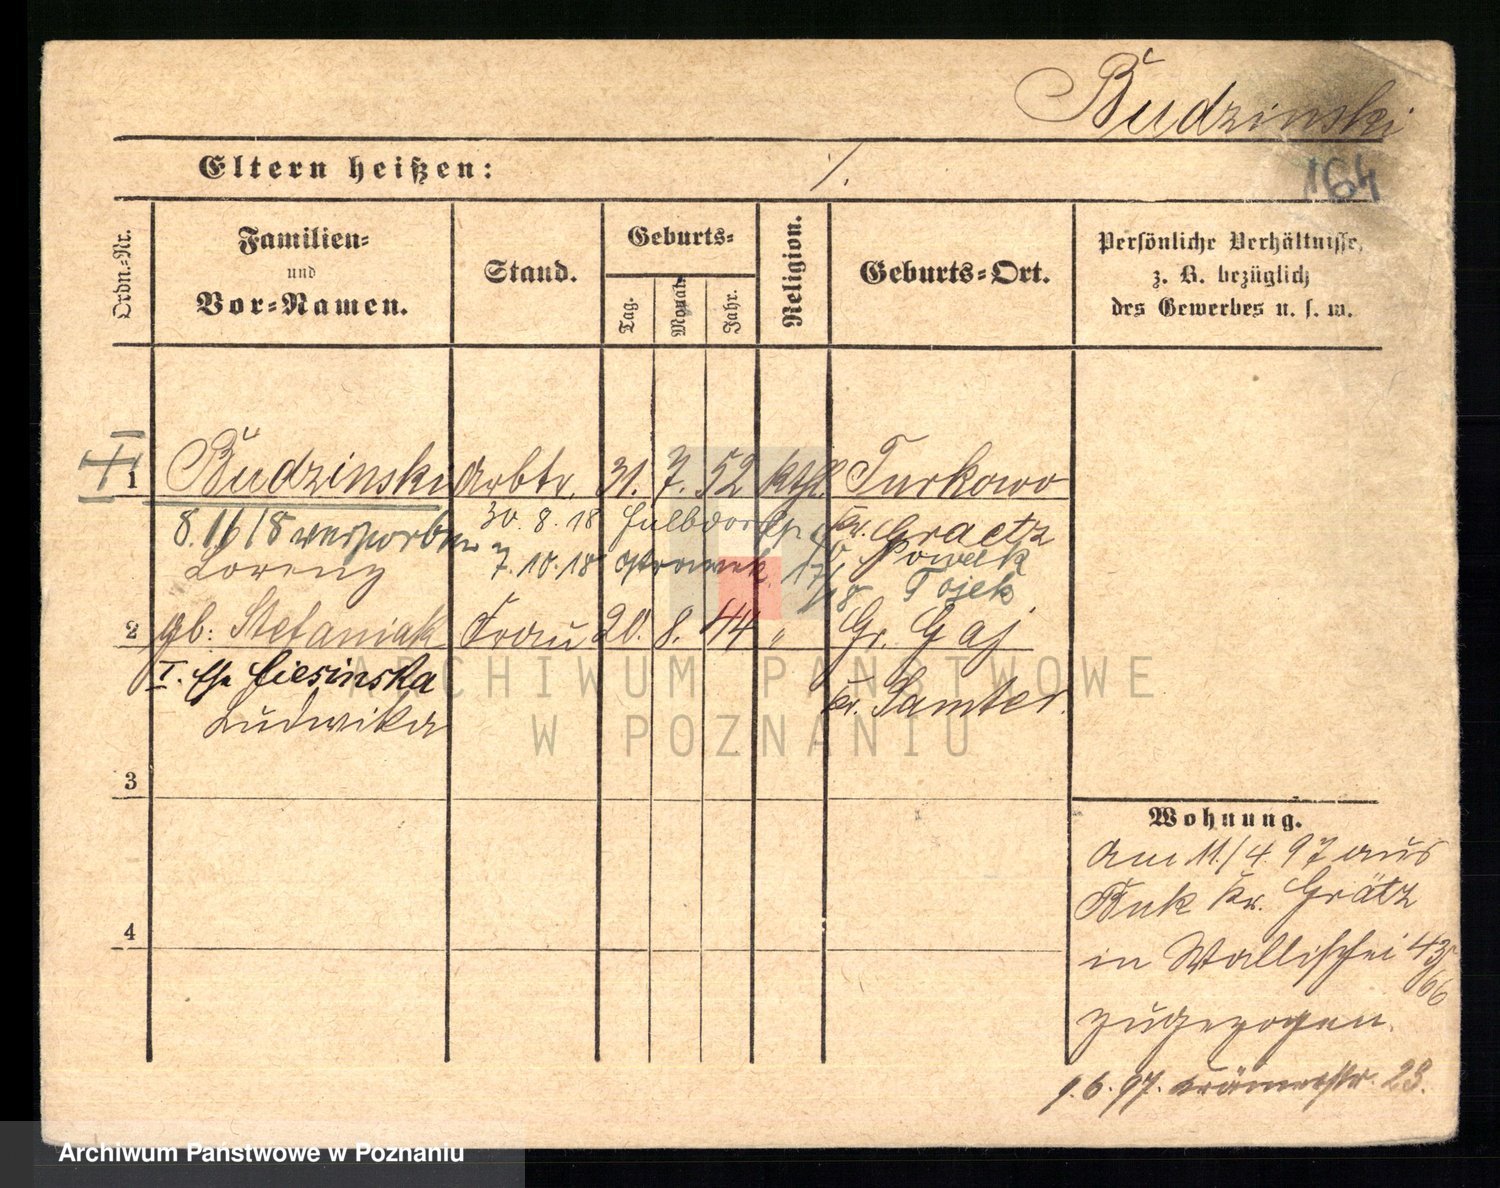 Budzinski
Eltern heißen: ./.
164
Ordn.-Nr.
Familien-
und
Vor-Namen.
Stand.
Geburts-
Tag.
Monat.
Jahr.
Religion.
Geburts-Ort.
Persönliche Verhältnisse,
z. B. bezüglich
des Gewerbes u. s. w.
1 Budzinski Arbtr. 31. 7. 52 kth. Turkowo
8.1618 verstorben 30. 8. 18 Kr. Graetz
Lorenz 7. 10. 18
2 gb: Stefaniak Frau 20. 8. 44 " Gr. Gaj
I. Ehe Ciesinska Kr. Samter.
Ludwika
3
4
Wohnung.
Am 11./4. 97 aus
Buk Kr. Grätz
in Wallischei 43/66
zugezogen.
9. 6. 97. Krämerstr. 23.
ARCHIWUM PAŃSTWOWE
W POZNANIU
Archiwum Państwowe w Poznaniu